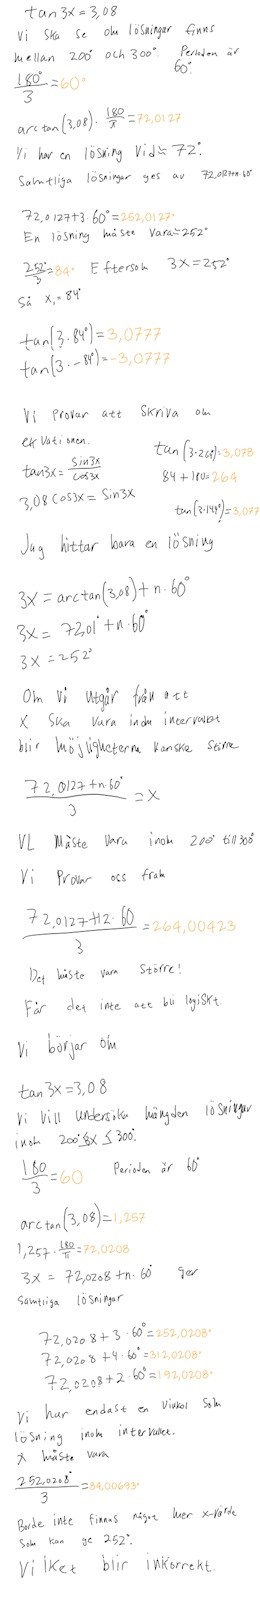 tan3x = 3,08
Vi ska se om lösningar finns
mellan 200° och 300°. Perioden är
60°
180°/3 = 60°
arctan(3,08) · 180/π = 72,0127
Vi har en lösning vid ≈ 72°.
Samtliga lösningar ges av 72,0127+n·60°
72,0127+3·60° = 252,0127°
En lösning måste vara ≈ 252°
252°/3 = 84° Eftersom 3x = 252°
så x₁ = 84°
tan(3·84°) = 3,0777
tan(3·-84°) = -3,0777
Vi provar att skriva om
ekvationen.
tan3x = sin3x/cos3x
3,08 cos3x = sin3x
tan(3·264°) = 3,078
84 + 180 = 264
tan(3·144°) = 3,077
Jag hittar bara en lösning
3x = arctan(3,08) + n·60°
3x = 72,01° + n·60°
3x = 252°
Om vi utgår från att
x ska vara inom intervallet
blir möjligheterna kanske större
72,0127+n·60°/3 = x
VL måste vara inom 200° till 300°
Vi provar oss fram
72,0127+12·60/3 = 264,00423
Det måste vara större!
Får det inte att bli logiskt.
Vi börjar om
tan3x = 3,08
Vi vill undersöka mängden lösningar
inom 200° ≤ x ≤ 300°.
180/3 = 60 Perioden är 60°
arctan(3,08) = 1,257
1,257 · 180/π = 72,0208
3x = 72,0208 + n·60° ger
samtliga lösningar
72,0208 + 3·60° = 252,0208°
72,0208 + 4·60° = 312,0208°
72,0208 + 2·60° = 192,0208°
Vi har endast en vinkel som
lösning inom intervallet.
x måste vara
252,0208°/3 = 84,00693°
Borde inte finnas något mer x-värde
som kan ge 252°.
Vilket blir inkorrekt.